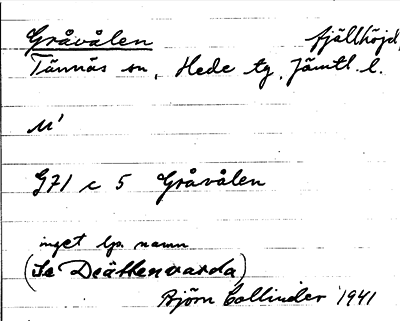 Gråvålen fjällhöjd,
Tännäs sn, Hede tg, Jämtl. l.
M'
G71 c 5 Gråvålen
inget lp. namn
(Se Deähtenvarda)
Björn Collinder 1941